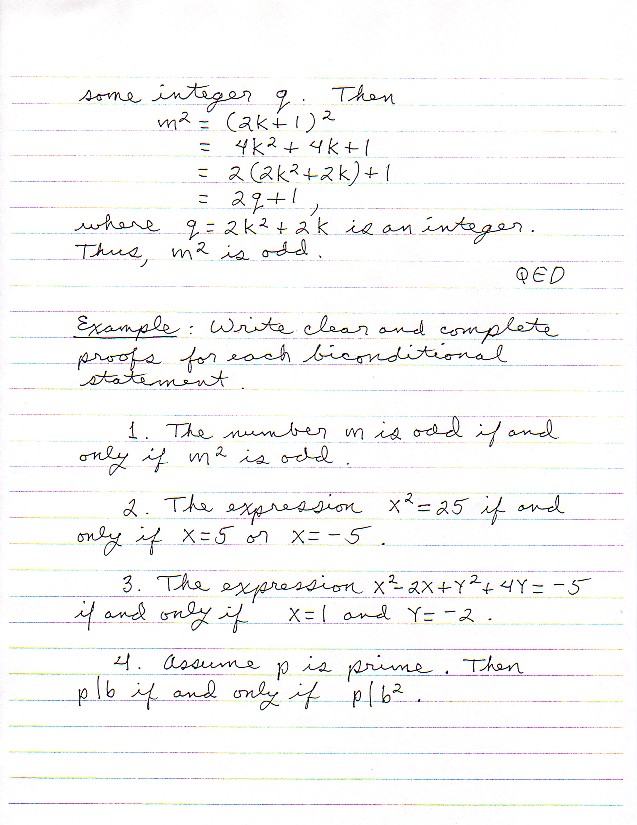 some integer q. Then
m² = (2k+1)²
= 4k² + 4k+1
= 2(2k²+2k)+1
= 2q+1,
where q = 2k² + 2k is an integer.
Thus, m² is odd.
QED
Example: Write clear and complete
proofs for each biconditional
statement.
1. The number m is odd if and
only if m² is odd.
2. The expression x²=25 if and
only if x=5 or x=-5.
3. The expression x²-2x+Y²+4Y=-5
if and only if x=1 and Y=-2.
4. Assume p is prime. Then
p|b if and only if p|b².